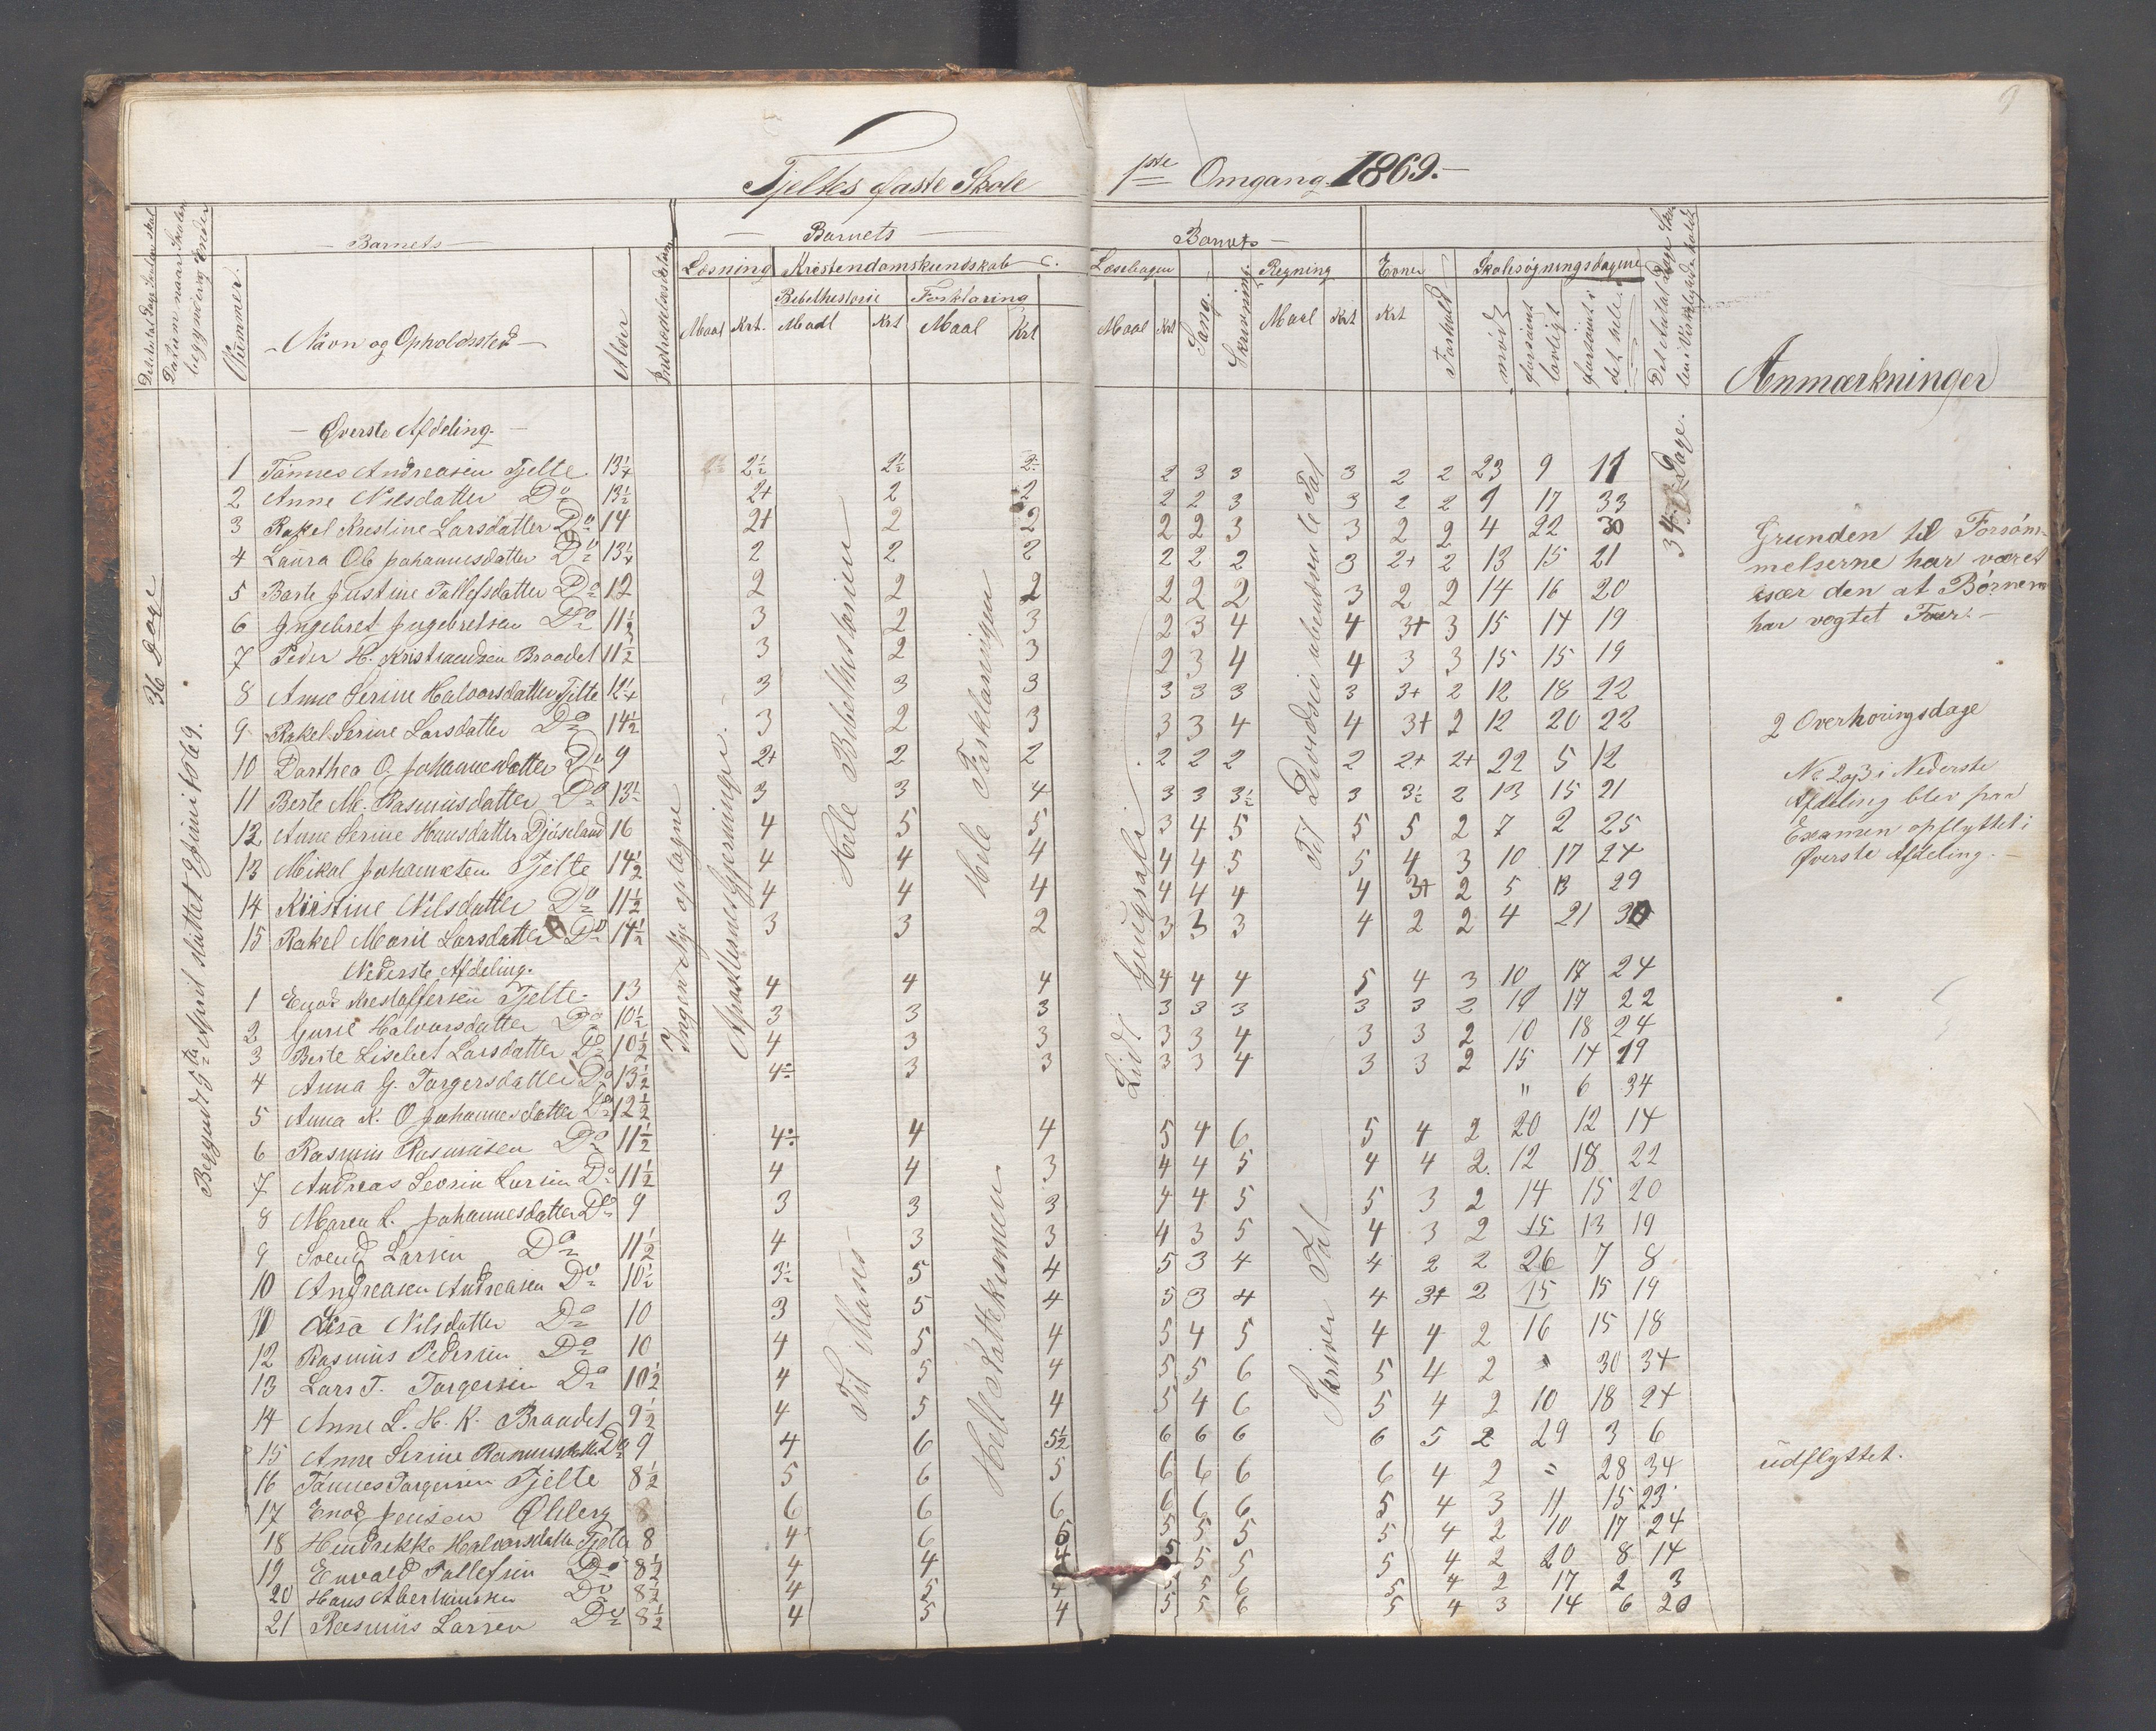 9
Tjeltes faste Skole 1ste Omgang 1869.-
Det Antal Dage Skolen skal
Datum naar Skolen begyndte og endte
Nummer.
- Barnets -
- Navn og Opholdssted -
Alder
Indtrædelsesdatum
- Barnets -
Læsning
Kristendomskundskab
Bibelhistorie
Forklaring
Maal Krt. Maal Krt Maal Krt
Barnets -
Læsebogen
Sang.
Skrivning.
Regning
Evner
Forhold
Skolesøgningsdagene
Maal Krt Maal Krt Krt
mødt
forsømt lovligt
forsømt i det hele
Anmærkninger
- Øverste Afdeling. -
1 Tønnes Andreasen Tjelte 13¼ 2½ 2½ 2 2 3 3 3 2 2 23 9 11
2 Anne Nilsdatter Do 13½ 2+ 2 2 2 2 3 3 2 2 9 17 33
3 Rakel Kristine Larsdatter Do 14 2+ 2 2 2 2 3 3 2 2 4 22 30
4 Laura Ol. Johannesdatter Do 13¼ 2 2 2 2 2 2 3 2+ 2 13 15 21
5 Berte Justine Tollefsdatter Do 12 2 2 2 2 2 2 3 2 2 14 16 20
6 Ingebret Ingebretsen Do 11½ 3 2 3 2 3 4 4 3+ 3 15 14 19
7 Peder H. Kristiansen Braadet 11½ 3 2 3 2 3 4 4 3 3 15 15 19
8 Anne Serine Halvorsdatter Tjelte 12¼ 3 3 3 3 3 3 3 3+ 2 12 18 22
9 Rakel Serine Larsdatter Do 14½ 3 2 3 3 3 4 4 3+ 2 12 20 22
10 Dorthea O. Johannesdatter Do 9 2+ 2 2 2 2 2 2 2+ 2+ 22 5 12
11 Berte M. Rasmusdatter Do 13½ 3 3 4 3 3 3½ 3 3½ 2 13 15 21
12 Anne Serine Hansdatter Djøseland 16 4 5 5 3 4 5 5 5 2 7 2 25
13 Mikal Johannesen Tjelte 14½ 4 4 4 4 4 5 5 4 3 10 17 24
14 Kirstine Nilsdatter Do 11½ 4 4 4 4 4 4 4 3+ 2 5 13 29
15 Rakel Marie Larsdatter Do 14½ 3 3 2 3 3 3 4 2 2 4 21 30
Nederste Afdeling.
1 Enok Kristoffersen Tjelte 13 4 4 4 4 4 4 5 4 3 10 17 24
2 Gurie Halvorsdatter Do 10½ 3 3 3 3 3 3 3 3 2 19 17 22
3 Berte Lisebet Larsdatter Do 10½ 4 3 3 3 3 4 3 3 2 10 18 24
4 Anna G. Torgersdatter Do 13½ 4÷ 3 3 3 3 4 3 3 2 15 14 19
5 Anna K. O Johannesdatter Do 12½ " 6 34
6 Rasmus Rasmusen Do 11½ 4÷ 4 4 5 4 6 5 4 2 20 12 14
7 Andreas Severin Larsen Do 11½ 4 4 3 4 4 5 4 4 2. 12 18 22
8 Maren L. Johannesdatter Do 9 3 3 3 4 4 5 5 3 2 14 15 20
9 Svend Larsen Do 11½ 4 3 3 4 3 5 4 3 2 15 13 19
10 Andreasen Andreasen Do 10½ 3½ 5 4 5 3 4 4 2 2 26 7 8
11 Lisa Nilsdatter Do 10 3 5 4 5 3 4 4 3+ 2 15 15 19
12 Rasmus Pedersen Do 10 4 5 4 5 4 5 4 4 2 16 15 18
13 Lars T. Torgersen Do 10½ 4 5 4 5 5 6 5 4 2 " 30 34
14 Anne L. H. K. Braadet 9½ 4 5 4 5 4 6 5 4 2 10 18 24
15 Anne Serine Rasmusdatter Do 9 4 6 5½ 6 6 6 6 5 2 29 3 6
16 Tønnes Torgersen Tjelte 8½ 5 6 5 6 6 6 6 4 2 " 28 34
17 Enok Jensen Ølberg 8 6 6 6 6 6 6 5 4 3 11 15 23
18 Hindrikke Halvorsdatter Tjelte 8 4 6 5 5 5 5 5 4 2 10 17 24
19 Envald Tollefsen Do 8½ 4 4 4 5 5 5 5 4 2 20 8 14
20 Hans Do 8½ 4 5 4 5 5 6 5 4 2 17 2 3
21 Rasmus Larsen Do 8½ 4 5 4 5 5 6 5 4 3 14 6 20
36 Dage
Begyndt 5te April sluttet Juni 1869.
Ingen Nye optagne
Apostlernes Gjerninger.
Hele Bibelhistorien
Hele Forklaringen
Til Manus
Hele Kattekismen
Lidt Gengivelse
Til Divisio
Skriver Tal
34 Dage.
Grunden til Forsøm-
melserne har været
især den at Børnene
har vogtet Faar. -
2 Overhøringsdage
No 2 og 3 i Nederste
Afdeling blev paa
Examen opflyttet i
Øverste Afdeling. -
udflyttet.